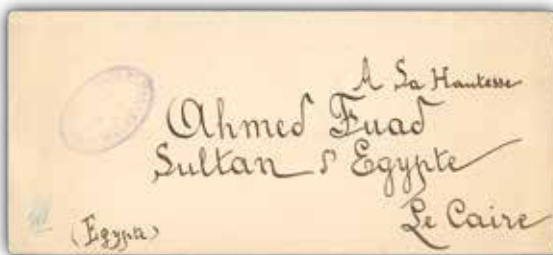 A Sa Hautesse
Ahmed Fuad
Sultan d'Egypte
Le Caire
(Egypte)